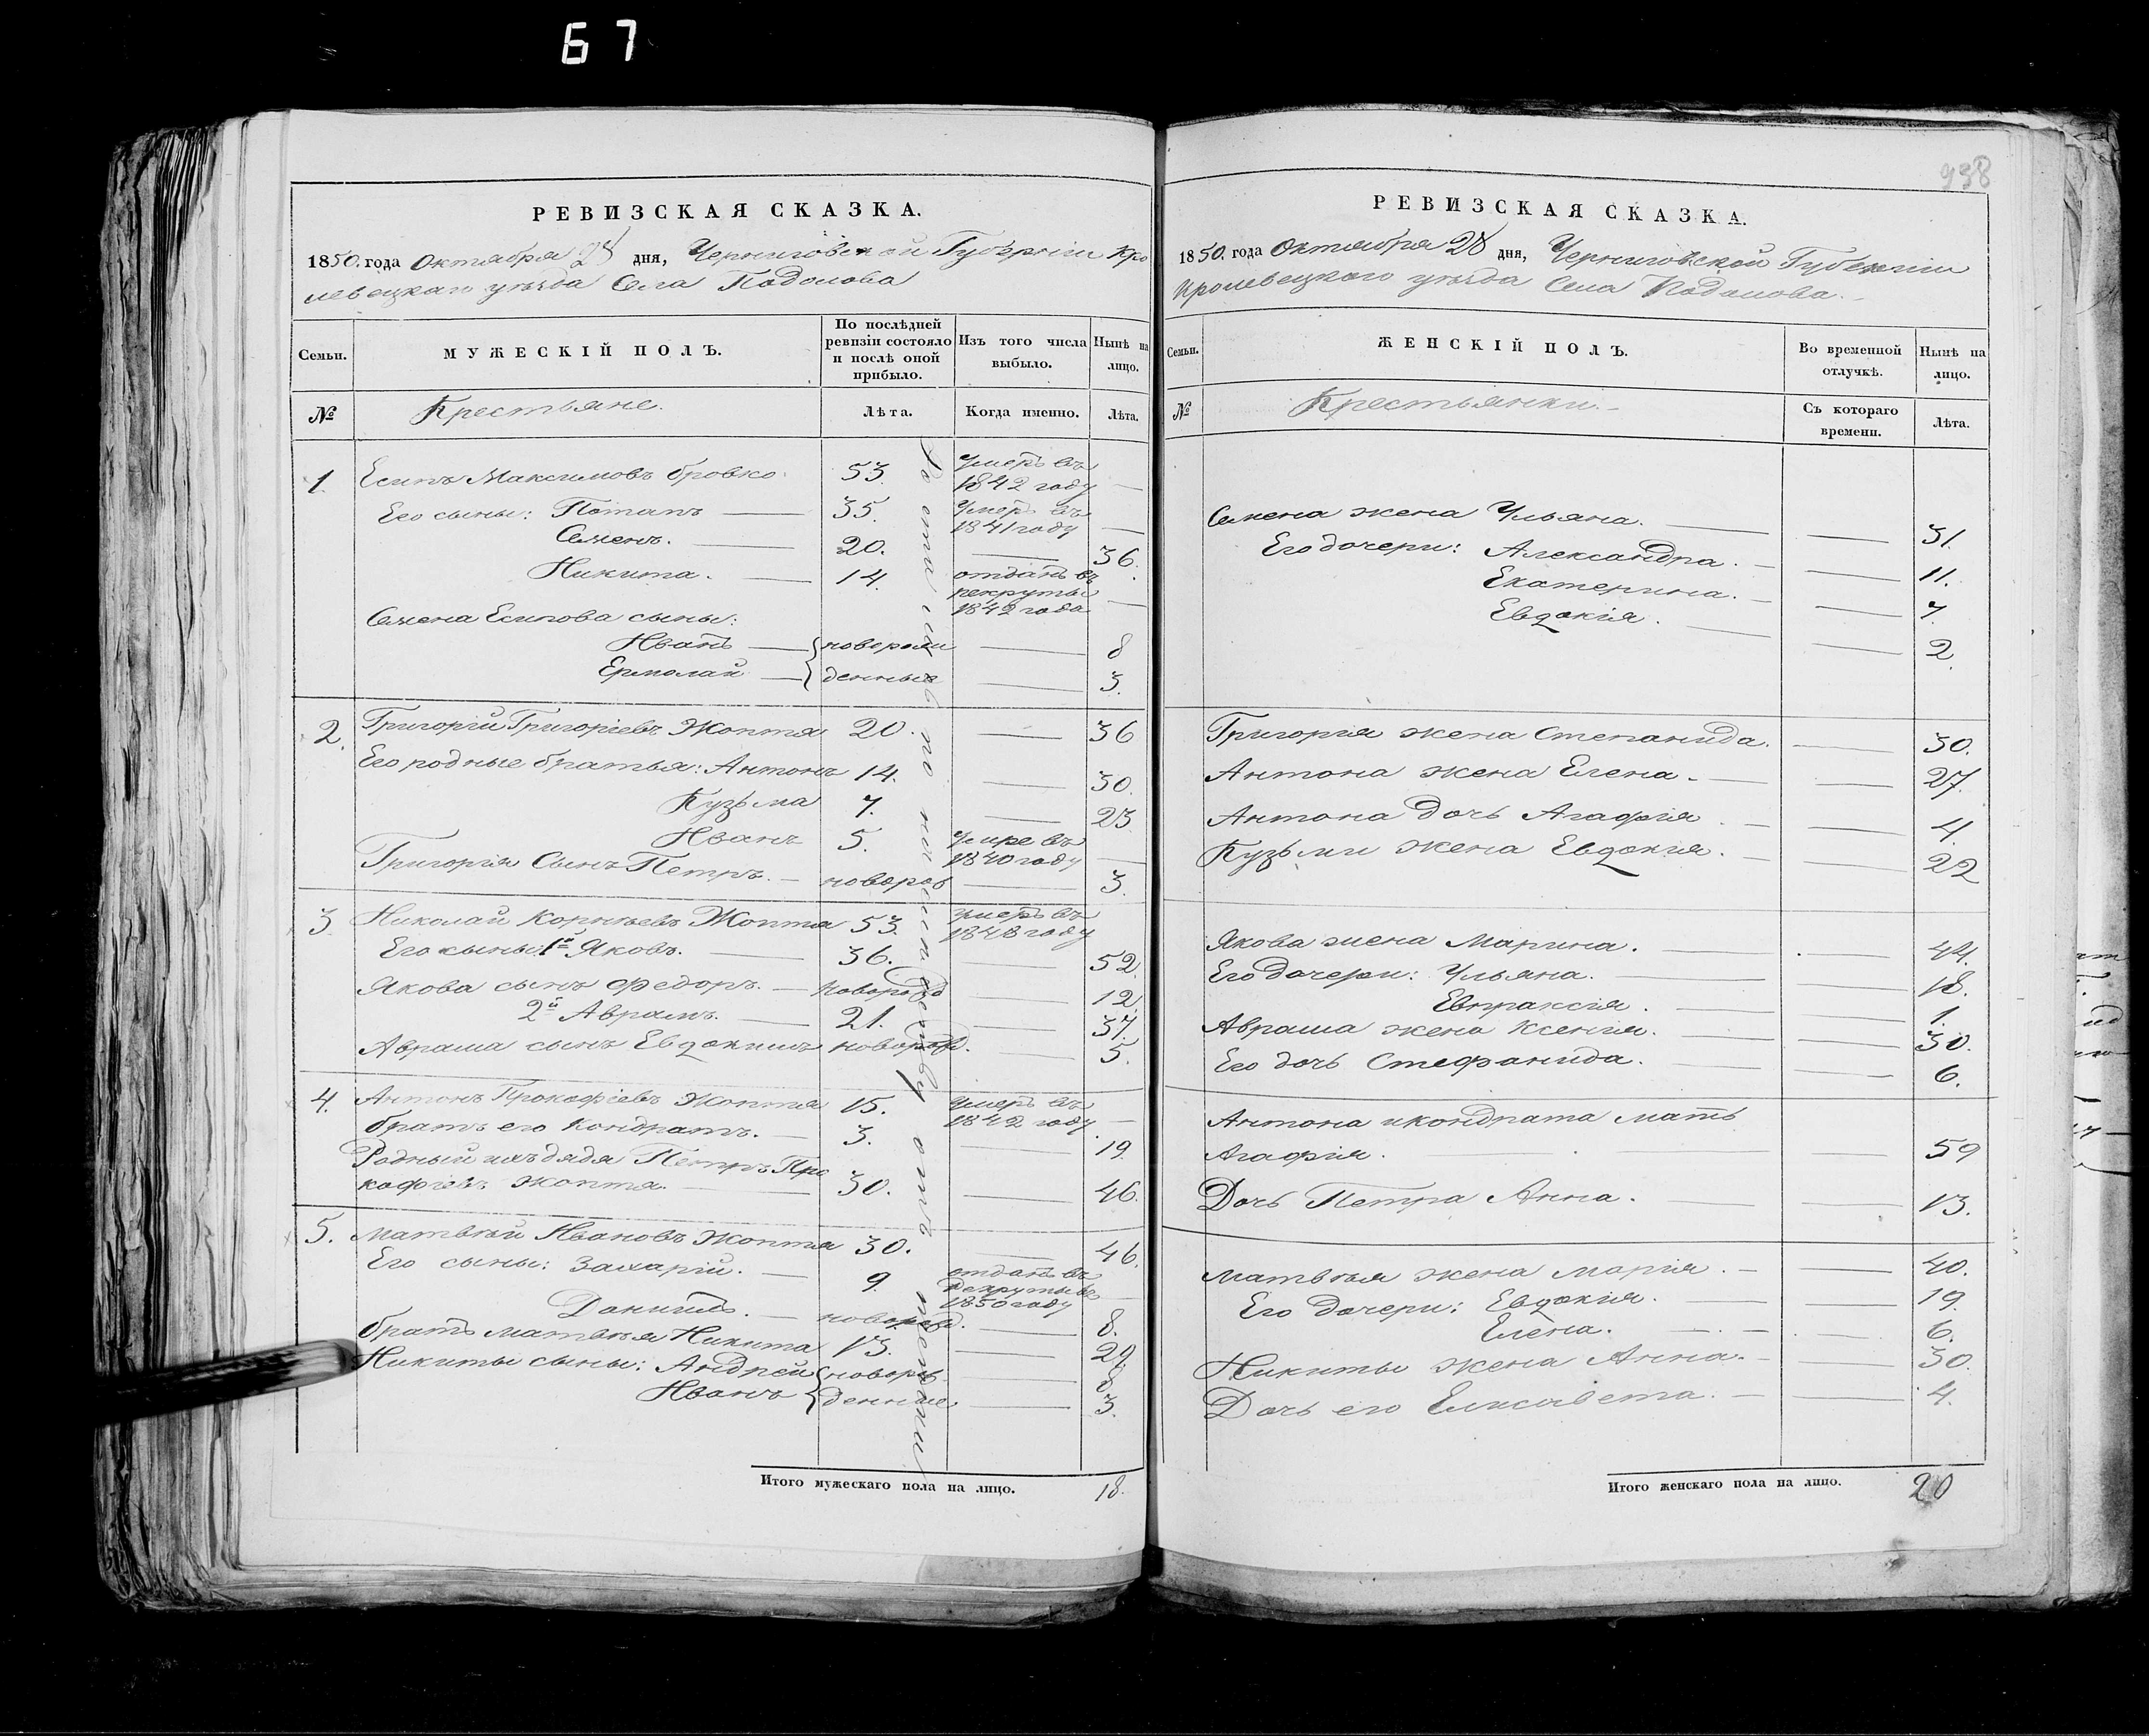 67
938
РЕВИЗСКАЯ СКАЗКА.
1850. года Октября 28 дня, Черниговской Губерніи Кро
левецкаго уѣзда Села Подолова
Семьи.
МУЖЕСКІЙ ПОЛЪ.
По послѣдней ревизіи состояло и послѣ оной прибыло.
Изъ того числа выбыло.
Нынѣ на лицо.
№
Крестьяне.
Лѣта.
Когда именно.
Лѣта.
1. Есипъ Максимовъ Бровко 53. умеръ въ 1842 году —
Его сыны: Потапъ — 35. Умеръ въ 1841 году —
Семенъ. — 20. — 36.
Никита. — 14. отданъ въ рекруты 1842 года —
Семена Есипова сыны:
Иванъ — новорож — 8
Ермолай — денные — 3.
2. Григорій Григоріевъ Жопта 20. — 36
Его родные братья: Антонъ 14. — 30.
Кузьма 7. — 23
Иванъ 5. умре въ 1840 году —
Григорія Сынъ Петръ. — новорож — 3.
3 Николай Корнѣевъ Жопта 53. умеръ въ 1848 году
Его сыны: 1й Яковъ. — 36. — 52.
Якова сынъ Федоръ. — новорожд — 12
2й Аврамъ. — 21. — 37.
Аврама сынъ Евдокимъ новорожд. — 5.
4. Антонъ Прокофіевъ Жопта 15. умеръ въ 1842 году. —
братъ его Кондратъ. — 3. — 19.
Родный ихъ дядя Петръ Про
кофіевъ Жопта. — 30. — 46.
5. Матвѣй Ивановъ Жопта 30. — 46.
Его сыны: Захарій. — 9. отданъ въ рекруты въ 1850 году —
Даниилъ. — новорожд. — 8.
братъ Матвѣя Никита 13. — 29.
Никиты сыны: Андрей новорож — 8
Иванъ денные — 3.
Итого мужескаго пола на лицо. 18.
РЕВИЗСКАЯ СКАЗКА.
1850. года Октября 28 дня, Черниговской Губерніи
Кролевецкаго уѣзда Села Подолова.
Семьи.
ЖЕНСКІЙ ПОЛЪ.
Во временной отлучкѣ.
Нынѣ на лицо.
№
Крестьянки.
Съ котораго времени.
Лѣта.
Семена жена Ульяна. — 31.
Его дочери: Александра. — 11.
Екатерина. — 7.
Евдокія. — 2.
Григорія жена Степанида. — 30.
Антона жена Елена. — 27.
Антона дочь Агафія — 4.
Кузьми жена Евдокія. — 22
Якова жена Марина. — 44.
Его дочери: Ульяна. — 18.
Евпраксія. — 1.
Аврама жена Ксенія. — 30.
Его дочь Стефанида. — 6.
Антона и Кондрата мать
Агафія. — 59
Дочь Петра Анна. — 13.
Матвѣя жена Марія. — 40.
Его дочери: Евдокія. — 19.
Елена. — 6.
Никиты жена Анна. — 30.
Дочь его Елисавета. — 4.
Итого женскаго пола на лицо. 20